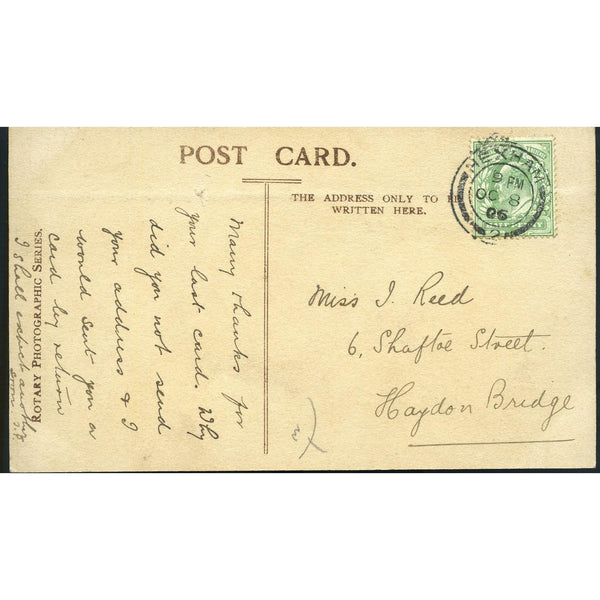 POST CARD.
THE ADDRESS ONLY TO BE
WRITTEN HERE.
HEXHAM
9 PM
OC 8
06
Many thanks for
your last card. Why
did you not send
your address & I
would sent you a
card by return
I shall expect another
soon
ROTARY PHOTOGRAPHIC SERIES.
Miss J. Reed
6, Shaftoe Street.
Haydon Bridge